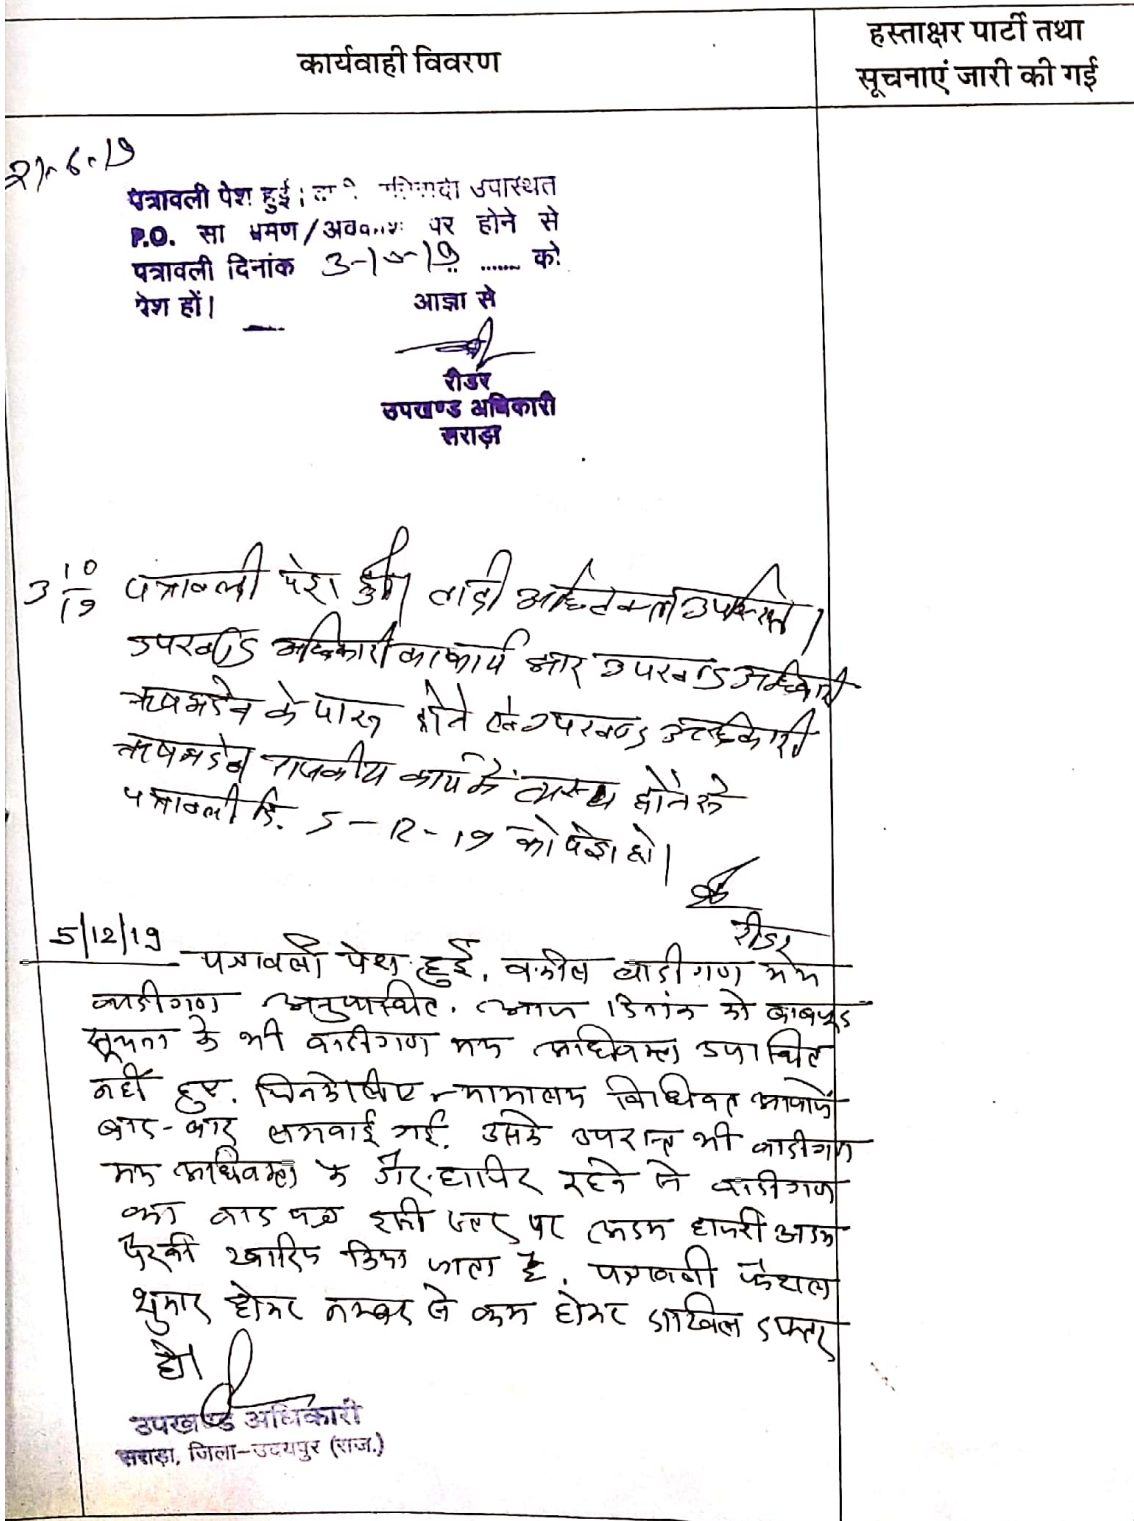 कार्यवाही विवरण
हस्ताक्षर पार्टी तथा
सूचनाएं जारी की गई
पत्रावली पेश हुई। उपस्थित
P.O. सा भ्रमण/अवकाश पर होने से
पत्रावली दिनांक 3-10-19 ....... को
पेश हों।
आज्ञा से
रीडर
उपखण्ड अधिकारी
सराड़ा
3 10/19 पत्रावली पेश हुई। वादी अधिवक्ता उपस्थित।
उपखण्ड अधिकारी का कार्य भार उपखण्ड अधिकारी
ऋषभदेव के पास होने एवं उपखण्ड अधिकारी
ऋषभदेव राजकीय कार्य में व्यस्त होने से
पत्रावली दि. 5-12-19 को पेश हो।
रीडर
5/12/19
पत्रावली पेश हुई. वकील वादीगण मय
वादीगण अनुपस्थित. आज दिनांक को बावजूद
सूचना के भी वादीगण मय अधिवक्ता उपस्थित
नहीं हुए. जिनके लिए न्यायालय विधिवत आवाजें
बार-बार लगवाई गई. उसके उपरान्त भी वादीगण
मय अधिवक्ता के गैर-हाजिर रहने से वादीगण
का वाद पत्र इसी स्तर पर अदम हाजरी अदम
पैरवी खारिज किया जाता है. पत्रावली फैसल
शुमार होकर नम्बर से कम होकर दाखिल दफ्तर
हो।
उपखण्ड अधिकारी
सराड़ा, जिला-उदयपुर (राज.)